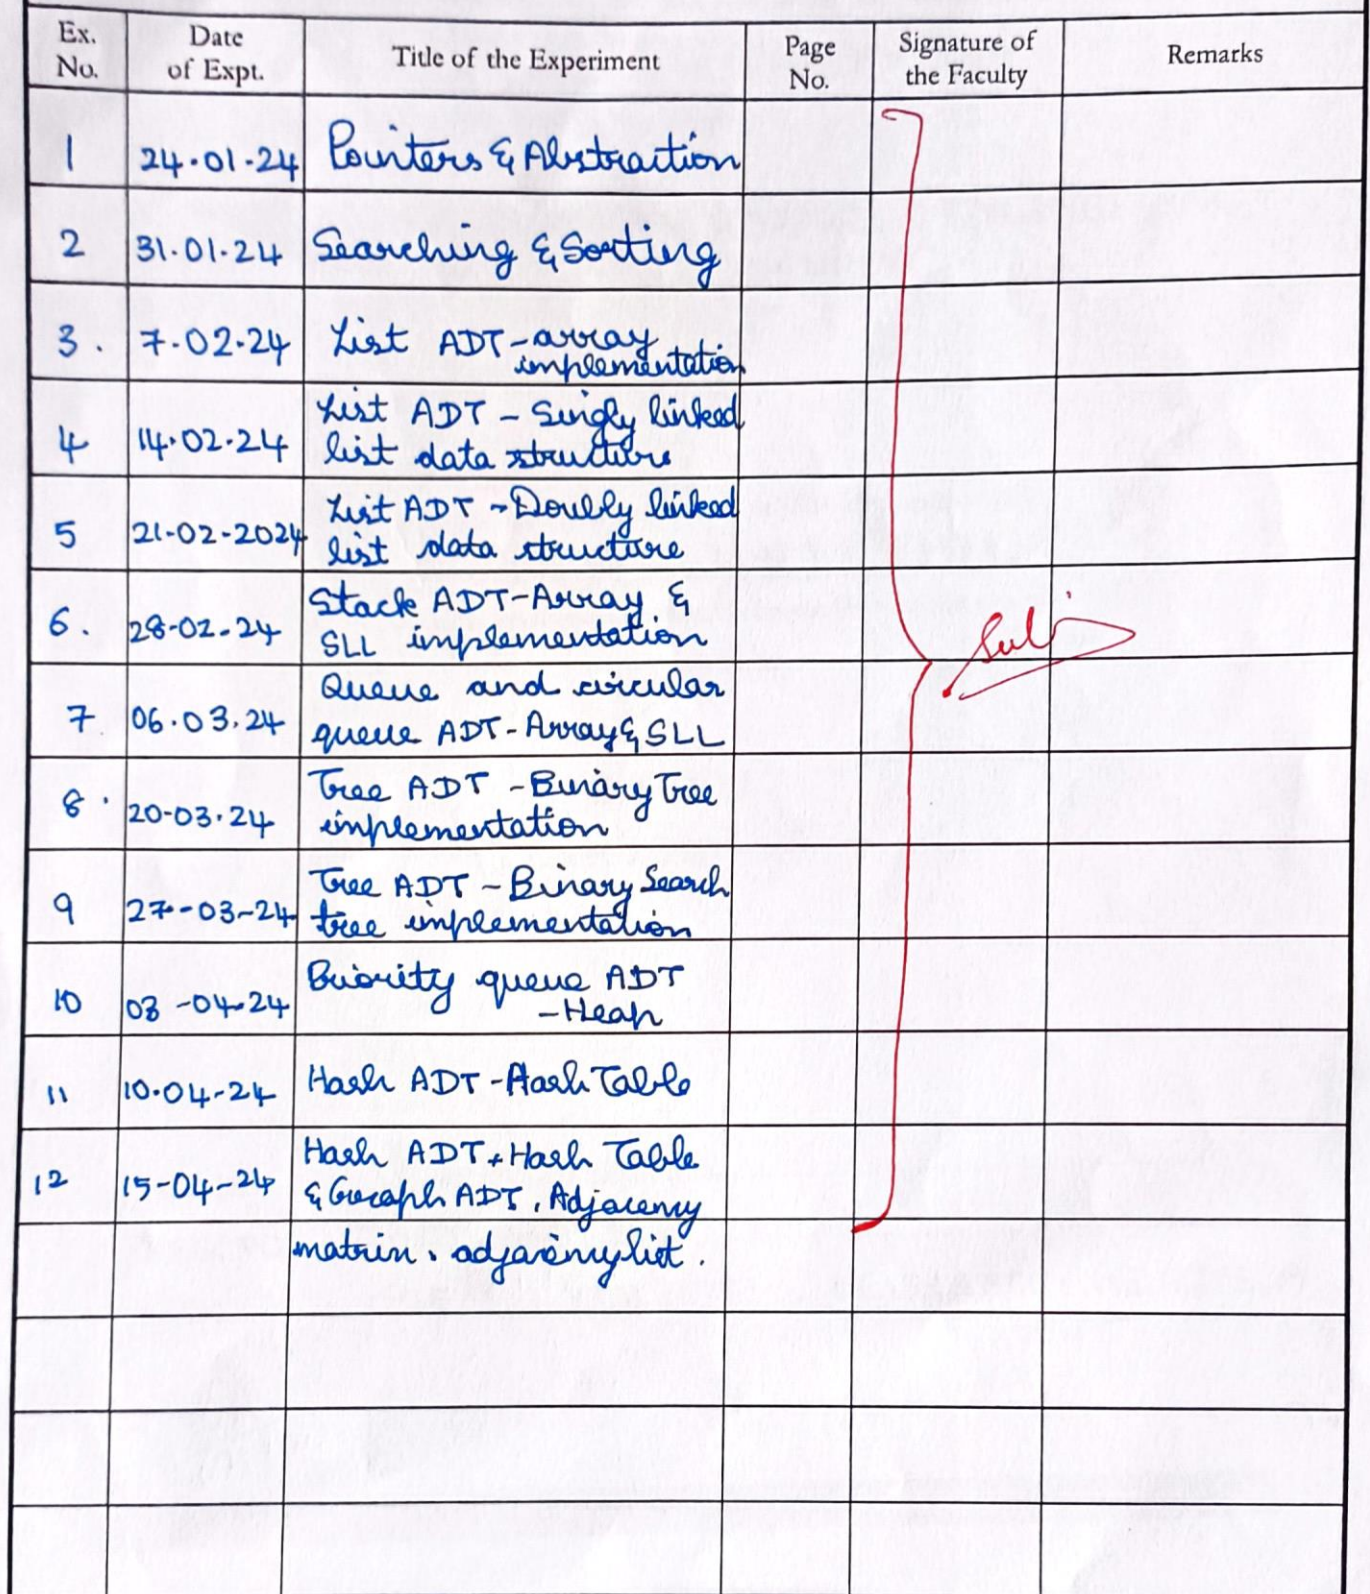 Ex. No. Date of Expt. Title of the Experiment Page No. Signature of the Faculty Remarks
1 24.01.24 Pointers & Abstraction
2 31.01.24 Searching & Sorting
3. 7.02.24 List ADT - array
implementation
4 14.02.24 List ADT - Singly linked
list data structure
5 21-02-2024 List ADT - Doubly linked
list data structure
6. 28-02-24 Stack ADT - Array &
SLL implementation
7 06.03.24 Queue and circular
queue ADT - Array & SLL
8. 20-03.24 Tree ADT - Binary Tree
implementation
9 27-03-24 Tree ADT - Binary Search
tree implementation
10 03-04-24 Priority queue ADT
- Heap
11 10.04-24 Hash ADT - Hash Table
12 15-04-24 Hash ADT. Hash Table
& Graph ADT. Adjacency
matrix. adjacency list.